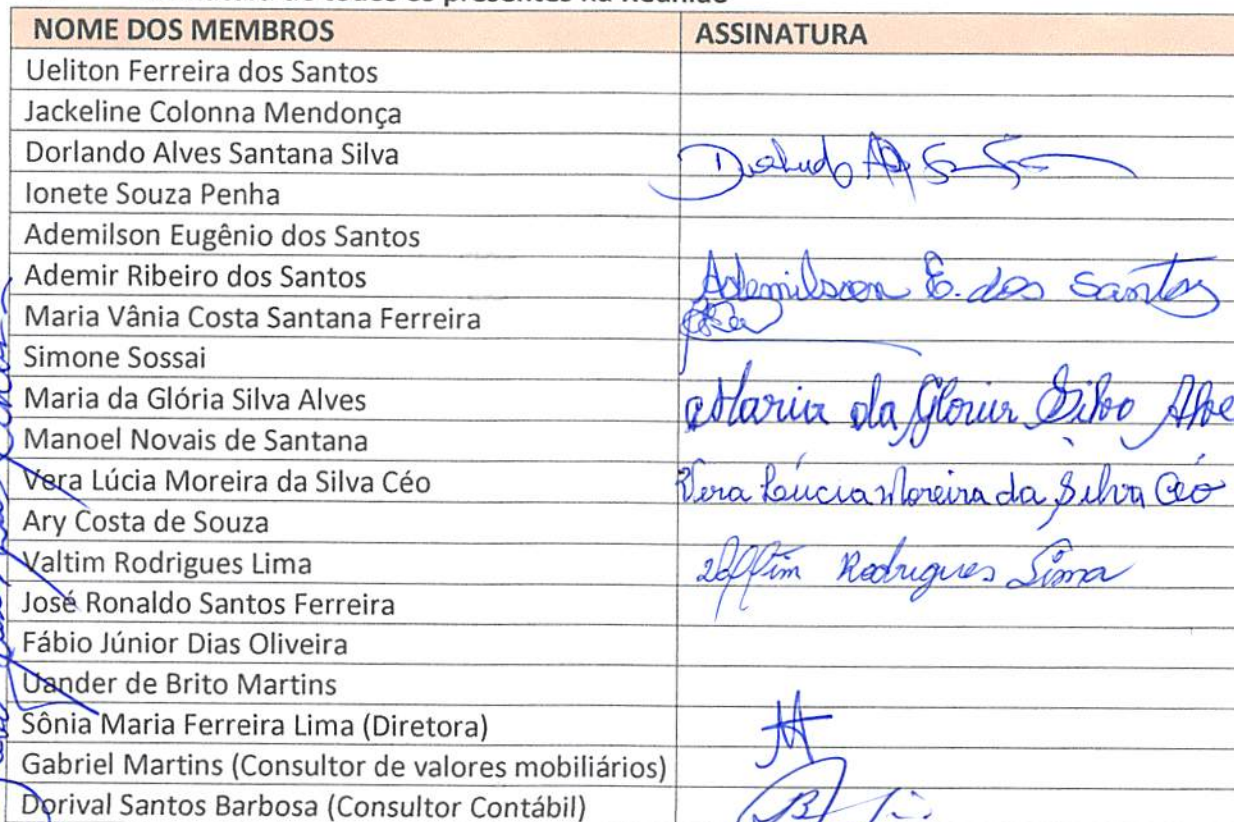 todos os presentes na Reunião
NOME DOS MEMBROS ASSINATURA
Ueliton Ferreira dos Santos
Jackeline Colonna Mendonça
Dorlando Alves Santana Silva
Ionete Souza Penha
Ademilson Eugênio dos Santos
Ademir Ribeiro dos Santos Ademilson E. dos Santos
Maria Vânia Costa Santana Ferreira
Simone Sossai
Maria da Glória Silva Alves Maria da Gloria Silva Alve
Manoel Novais de Santana
Vera Lúcia Moreira da Silva Céo Vera Lúcia Moreira da Silva Céo
Ary Costa de Souza
Valtim Rodrigues Lima Valtim Rodrigues Lima
José Ronaldo Santos Ferreira
Fábio Júnior Dias Oliveira
Uander de Brito Martins
Sônia Maria Ferreira Lima (Diretora)
Gabriel Martins (Consultor de valores mobiliários)
Dorival Santos Barbosa (Consultor Contábil)